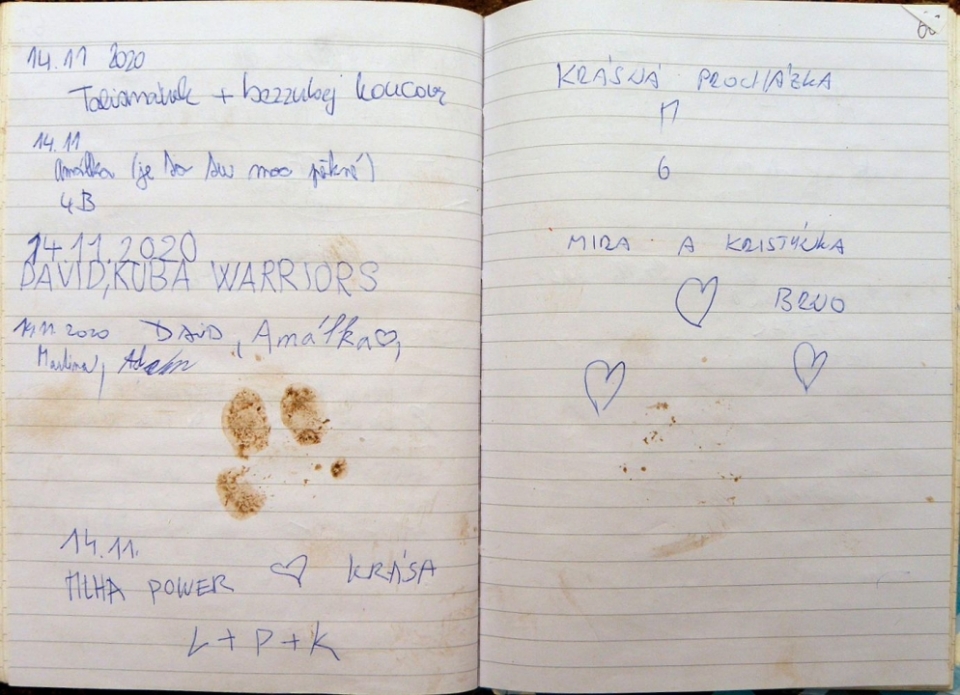 14.11 2020
+ bezzubej kocour
14.11
Amálka (je to tu moc pěkné)
4B
14.11.2020
DAVID, KUBA WARRIORS
14.11 2020 DAVID, Amálka♡,
Martina,
14.11.
MLHA POWER ♡ KRÁSA
L + P + K
KRÁSNÁ PROCHÁZKA
6
MIRA A KRISTÝNKA
♡ BRNO
♡ ♡